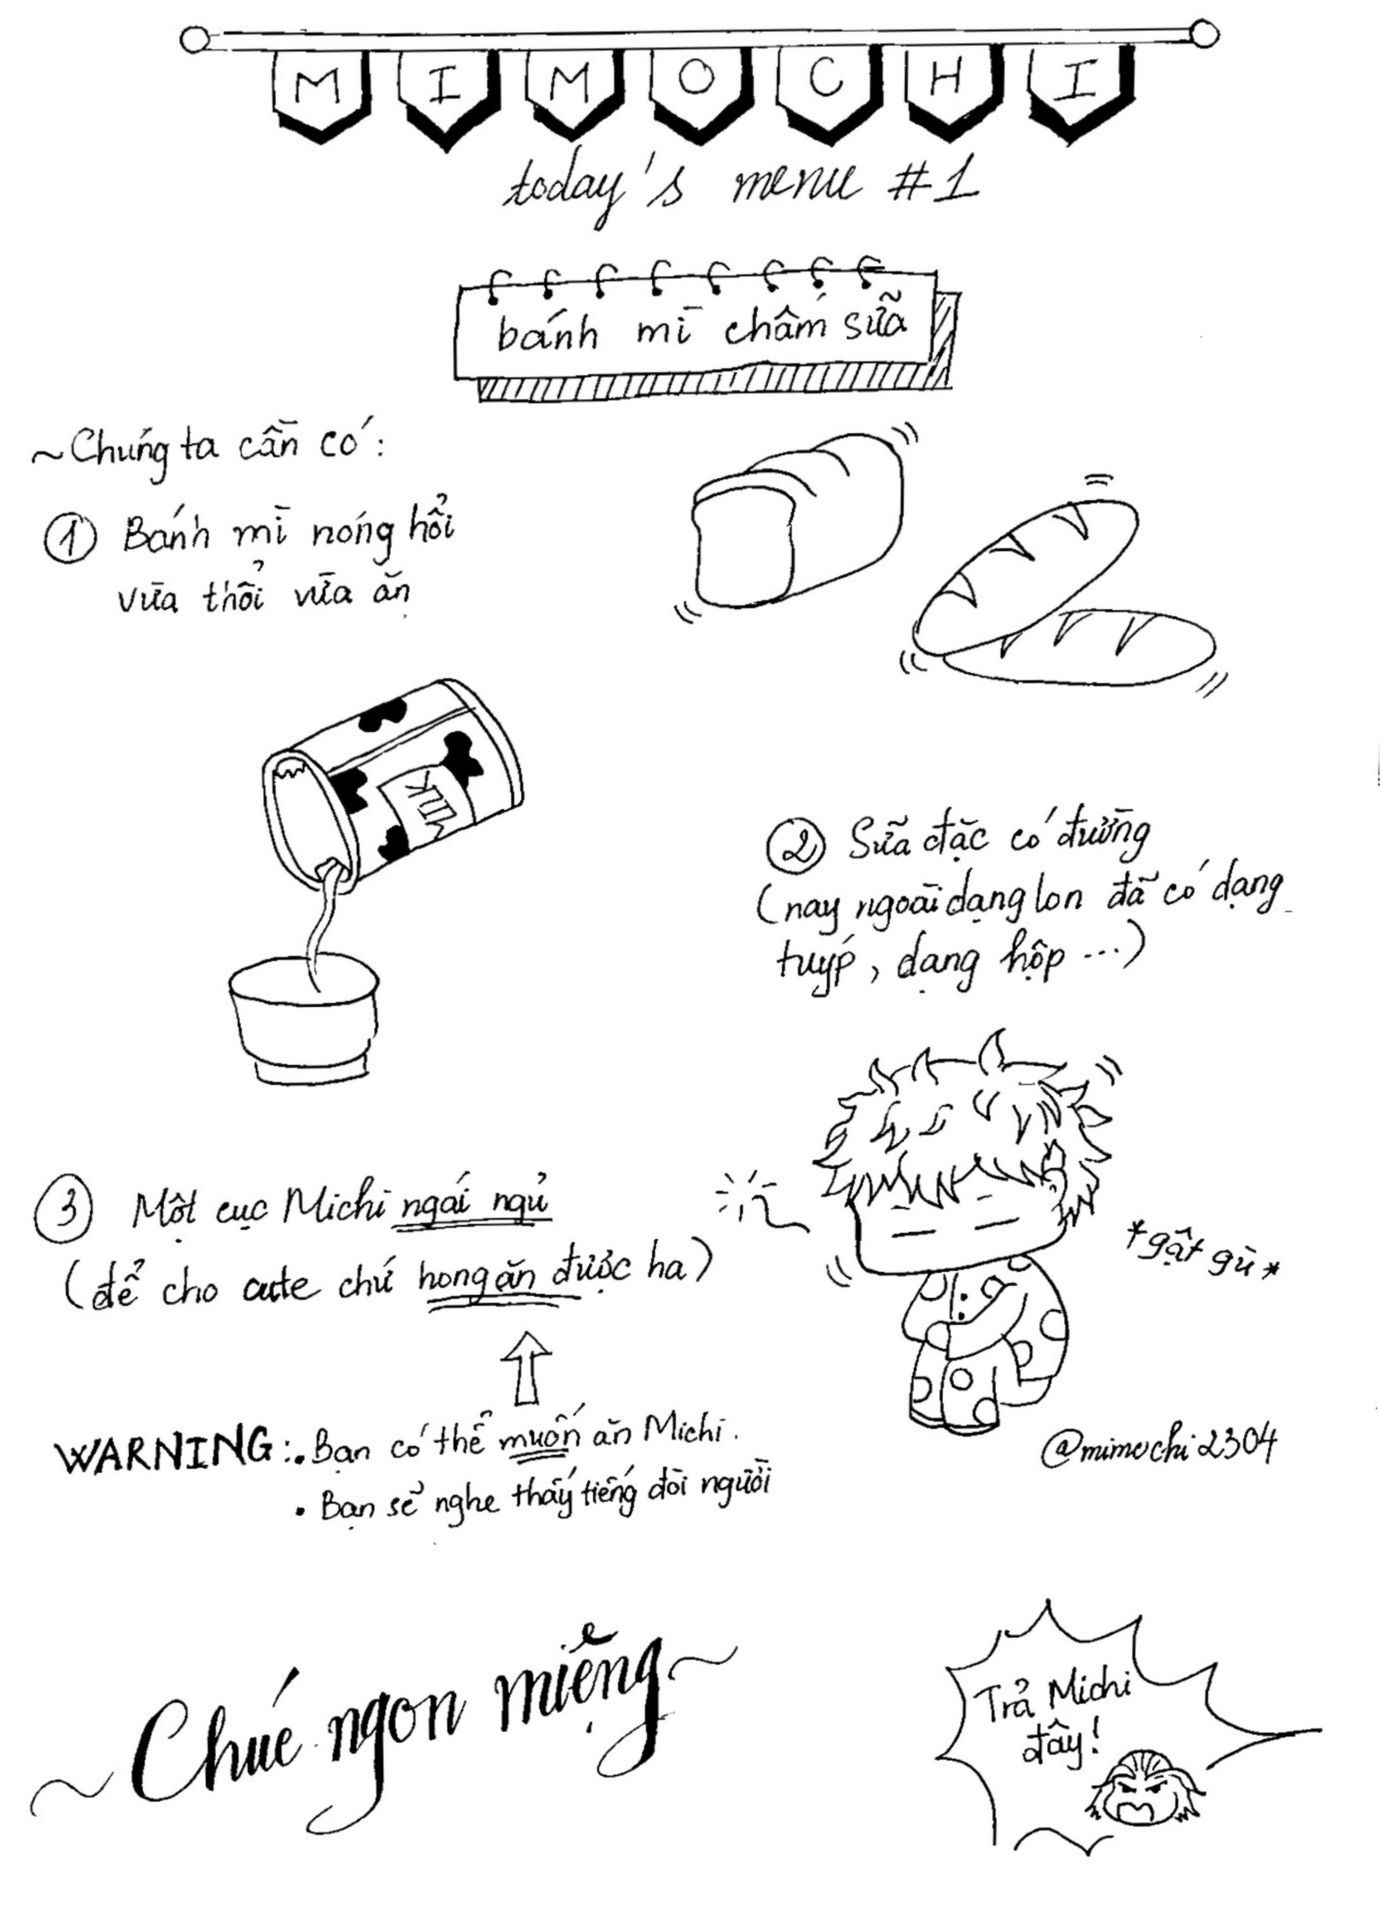 MIMOCHI
today's menu #1
bánh mì chấm sữa
~Chúng ta cần có:
① Bánh mì nóng hổi
vừa thổi vừa ăn
MILK
② Sữa đặc có đường
(nay ngoài dạng lon đã có dạng
tuýp, dạng hộp ...)
③ Một cục Michi ngái ngủ
(để cho cute chứ hong ăn được ha)
*gật gù*
WARNING: • Bạn có thể muốn ăn Michi.
• Bạn sẽ nghe thấy tiếng đòi người
@mimochi2304
~Chúc ngon miệng~
Trả Michi
đây!